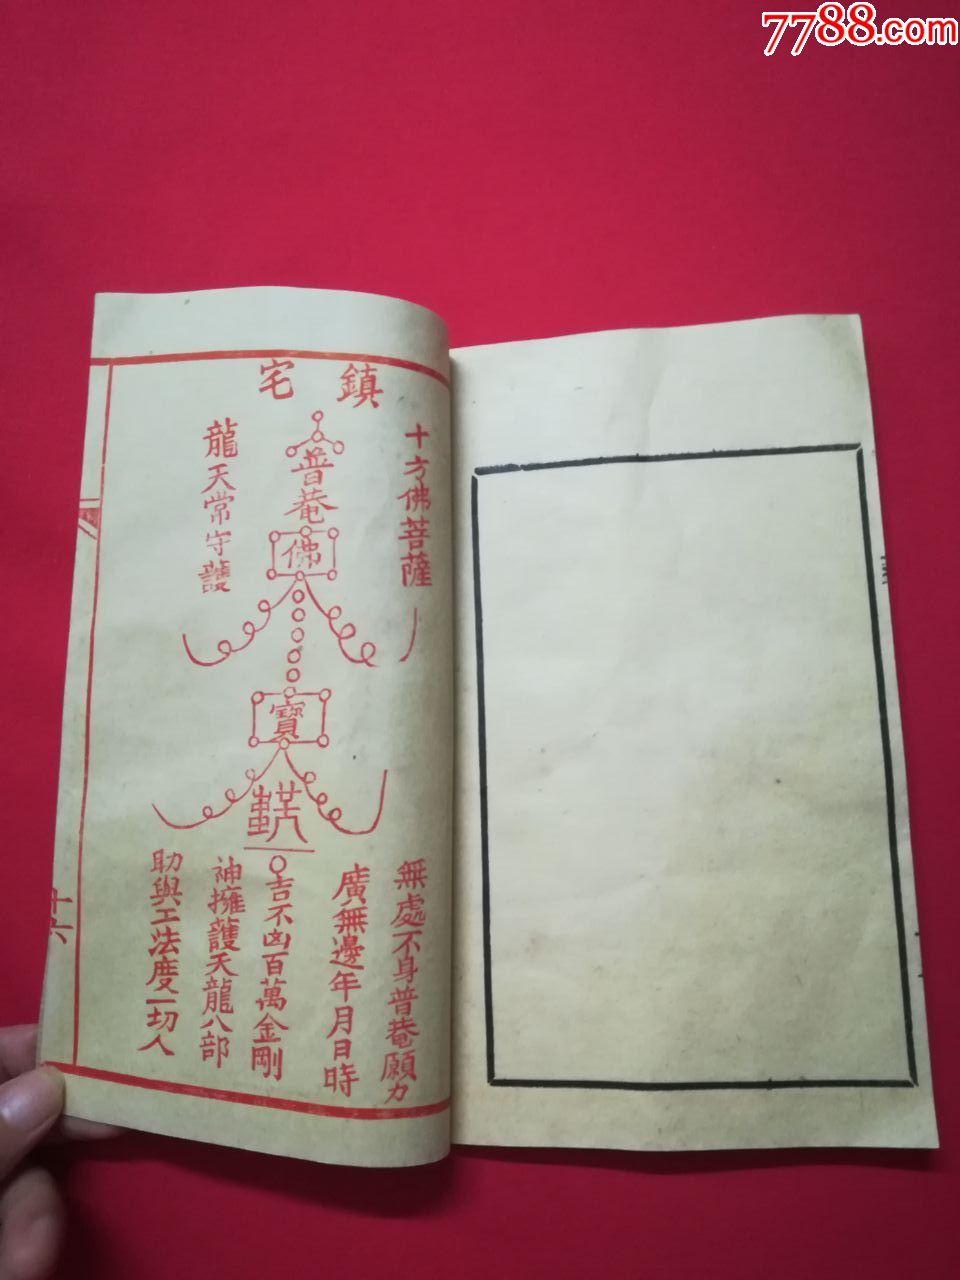 7788.com
鎮宅
十方佛菩薩
普菴
佛
寶
龍天常守護
無處不身普菴願力
廣無邊年月日時
吉不凶百萬金剛
神擁護天龍八部
助與工法度一切人
十六